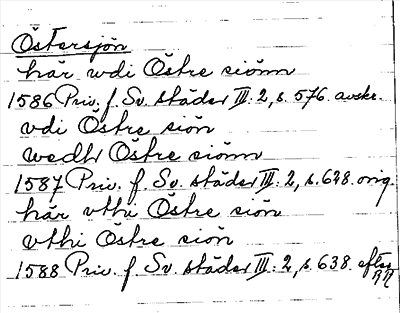 Östersjön
här wdi Östre siönn
1586 Priv. f. Sv. städer III: 2, s. 576. avskr.
vdi Östre siön
wedh Östre siönn
1587 Priv. f. Sv. städer III: 2, s. 628. orig.
här vthi Östre siön
vthi Östre siön
1588 Priv. f. Sv. städer III: 2, s. 638. efter